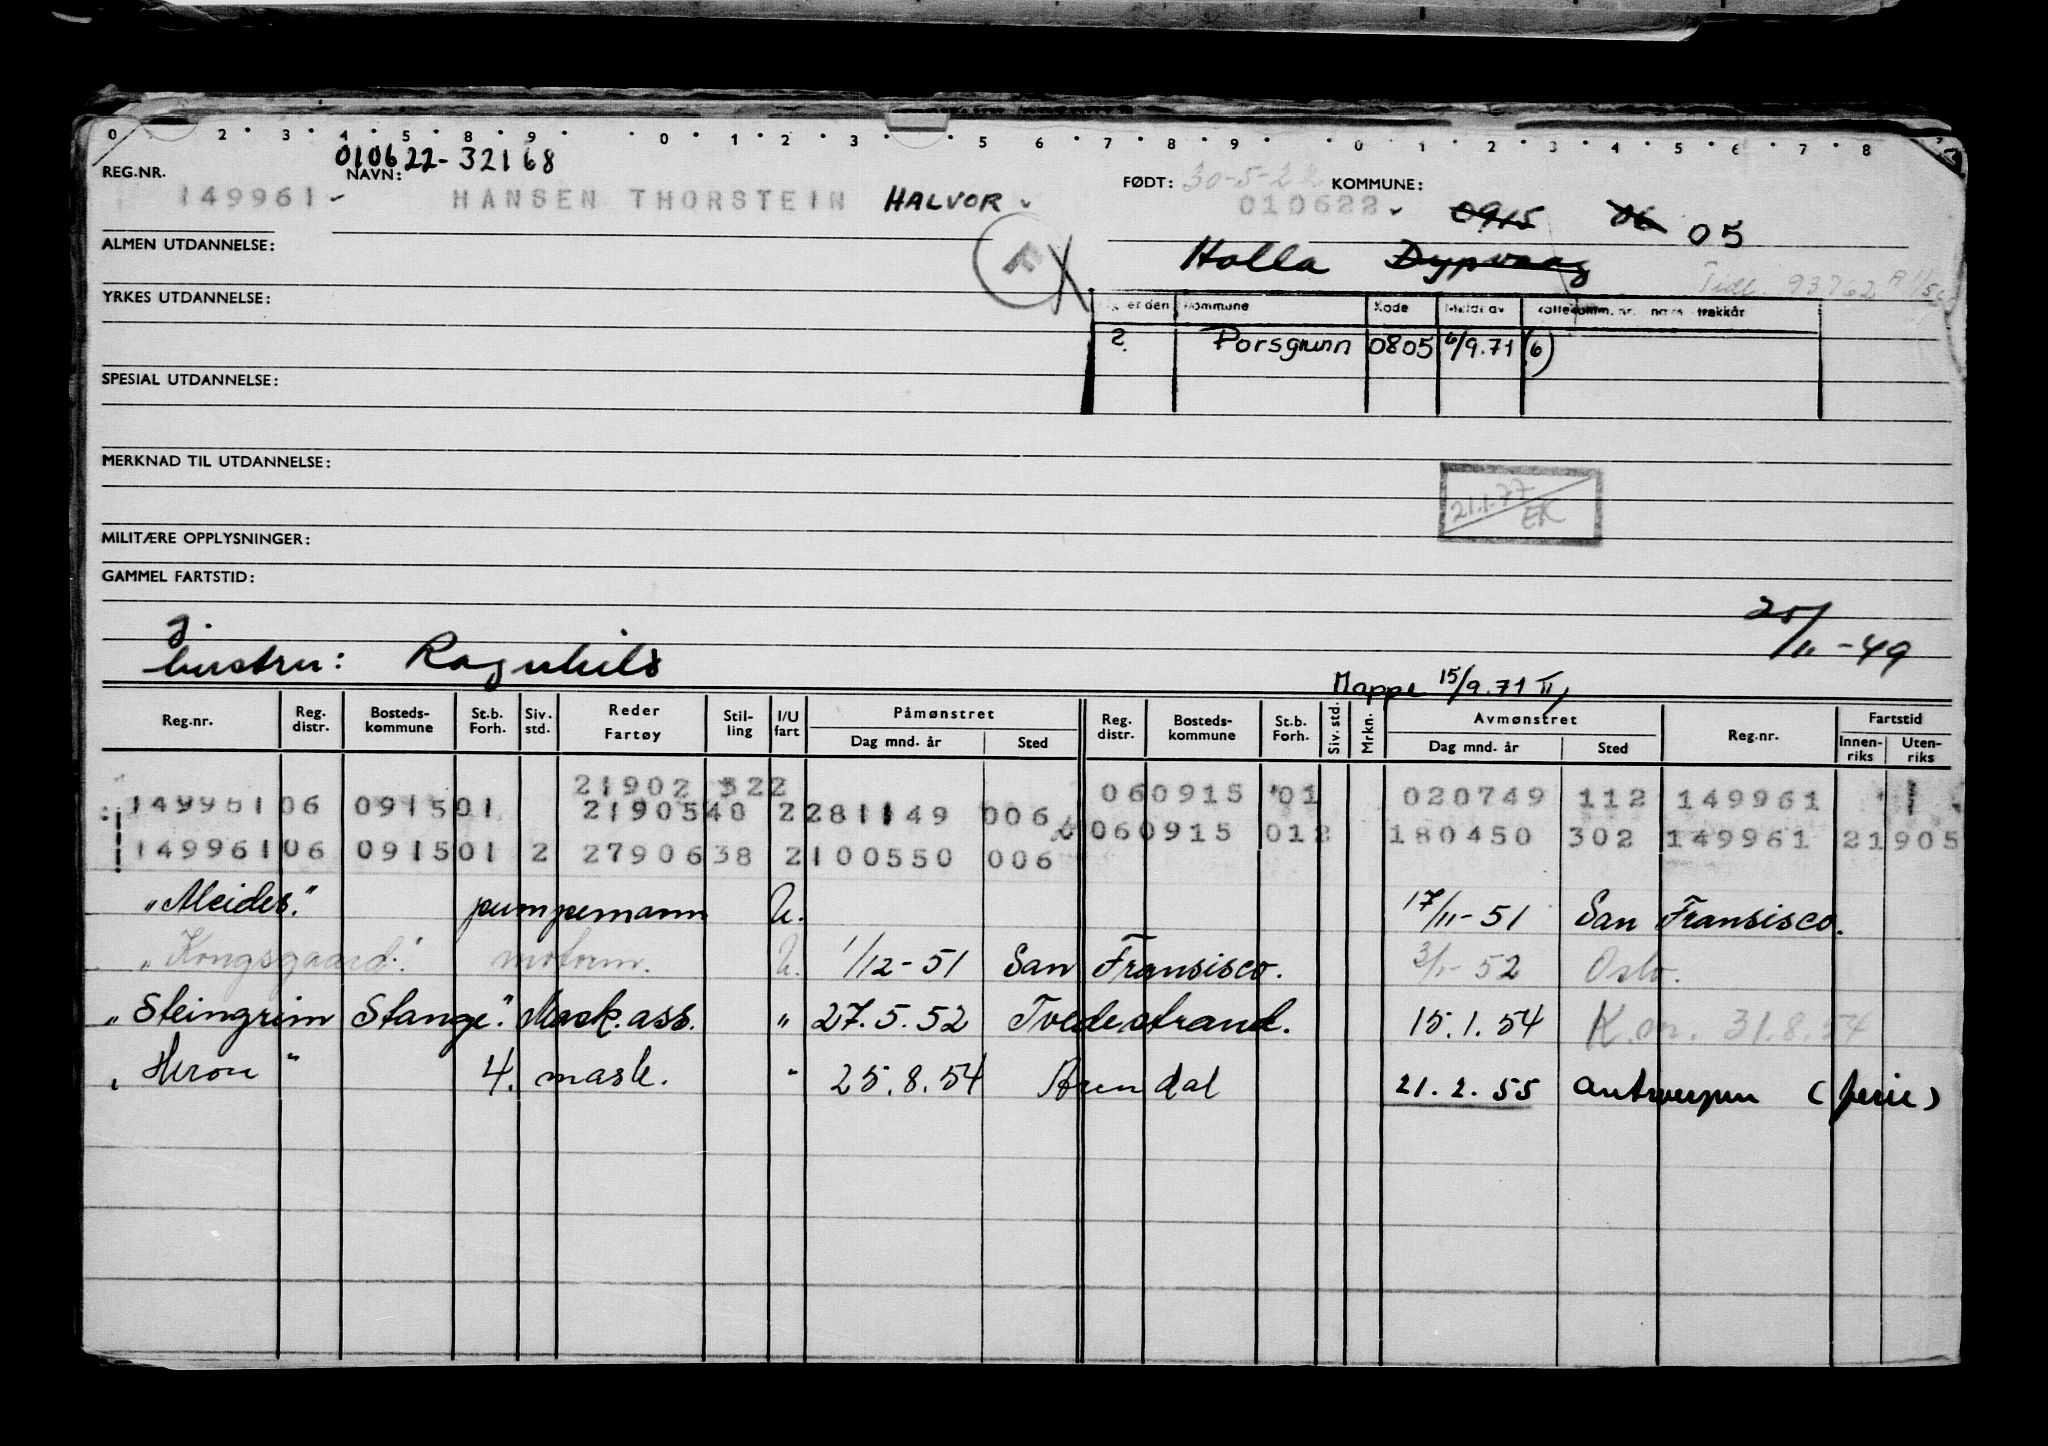 0 2 3 4 5 8 9 0 1 2 3 5 6 7 8 9 0 1 2 3 4 5 6 7 8
010622-32168
REG.NR. NAVN: FØDT: 30-5-22 KOMMUNE:
149961 - HANSEN THORSTEIN HALVOR 010622 - 0915 06 05
ALMEN UTDANNELSE: Holla Dypvaag
Tidl. 93762
YRKES UTDANNELSE: er den Kommune Kode Meldt av
2 Porsgrunn 0805 6/9.71 (6)
SPESIAL UTDANNELSE:
MERKNAD TIL UTDANNELSE:
21.1.77 EK
MILITÆRE OPPLYSNINGER:
GAMMEL FARTSTID:
g. 25/11-49
hustru: Ragnhild
Mappe 15/9.71
Reg.nr. Reg. distr. Bosteds-kommune St.b. Forh. Siv. std. Reder Fartøy Stil-ling I/U fart Påmønstret Dag mnd. år Sted Reg. distr. Bosteds-kommune St.b. Forh. Siv. std. Mrkn. Avmønstret Dag mnd. år Sted Reg.nr. Fartstid Innen-riks Uten-riks
21902 322 060915 01 020749 112 149961
149961 06 0915 01 21905 48 2 281149 006 060915 012 180450 302 149961 21905
149961 06 0915 01 2 27906 38 2 100550 006
"Alcides." pumpemann U. 17/11-51 San Fransisco.
"Kongsgaard." motorm. U. 1/12-51 San Fransisco. 3/1-52 Oslo.
"Steingrim Stange". Mask.ass. " 27.5.52 Tvedestrand. 15.1.54 K.on. 31.8.54
"Heron" 4. mask. " 25.8.54 Arendal 21.2.55 Antwerpen (ferie)